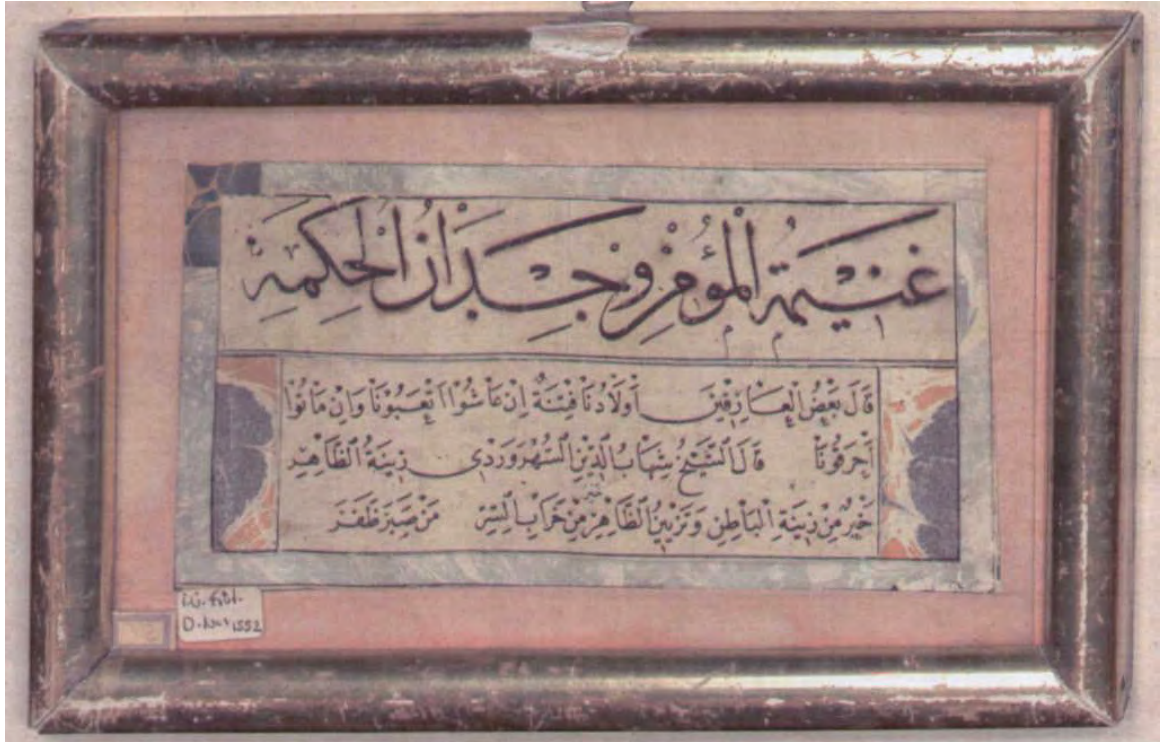 غنيمةُ المؤمن وِجدانُ الحكمةِ
قَالَ بَعْضُ الْعَارِفِينَ اَوْلَادُنَا فِتْنَةٌ اِنْ عَاشُوْا اَتْعَبُوْنَا وَاِنْ مَاتُوْا
اَحْرَقُوْنَا قَالَ الشَّيْخُ شِهَابُ الدِّيْنِ السُّهْرَوَرْدِي زِينَةُ الظَّاهِرِ
خَيْرٌ مِنْ زِينَةِ الْبَاطِنِ وَتَزْيِينُ الظَّاهِرِ مِنْ خَرَابِ السِّرِّ مَنْ صَبَرَ ظَفَرَ
D. No: 1552